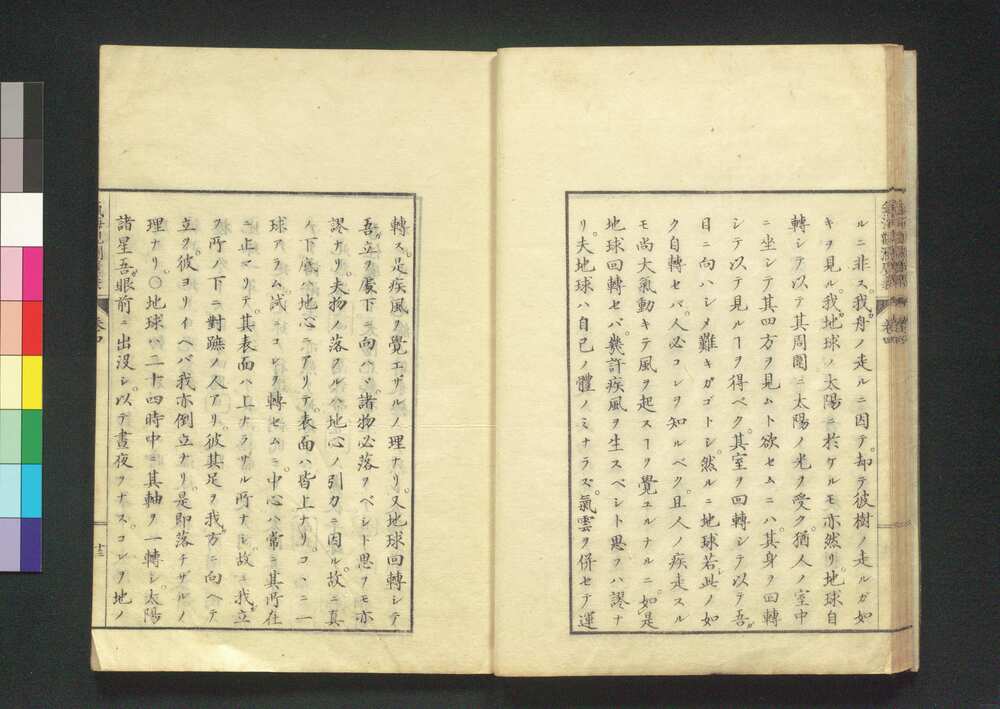 ルニ非ス。我舟ノ走ルニ因テ。却テ彼樹ノ走ルガ如
キヲ見ル。我地球ノ太陽ニ於ケルモ亦然リ。地球自
轉シテ以テ其周圍ニ太陽ノ光ヲ受ク。猶人ノ室中
ニ坐シテ其四方ヲ見ムト欲セムニハ。其身ヲ回轉
シテ以テ見ルヿヲ得ベク。其室ヲ回轉シテ以テ吾
目ニ向ハシメ難キガゴトシ。然ルニ地球若此ノ如
ク自轉セバ。人必コレヲ知ルベク。且人ノ疾走スル
モ尚大氣動キテ風ヲ起スヿヲ覺ユルナルニ。如是
地球回轉セバ。幾許疾風ヲ生スベシト思フハ謬ナ
リ。夫地球ハ自己ノ體ノミナラズ。氣雲ヲ併セテ運
轉ス。是疾風ヲ覺エザルノ理ナリ。又地球回轉シテ
吾立ツ處下ニ向ハヾ。諸物必落ツベシト思フモ亦
謬ナリ。夫物ノ落ツルハ地心ノ引力ニ因ル。故ニ真
ノ下底ハ地心ニアリテ。表面ハ皆上ナリ。コヽニ一
球アラム。試ニコレヲ轉セムニ。中心ハ常ニ其所在
ニ止マリテ。其表面ハ上ナラザル所ナシ。故ニ我立
ツ所ノ下ニ對蹠ノ人アリ。彼其足ヲ我方ニ向ヘテ
立ツ。彼ヨリイヘバ我亦倒立ナリ。是即落チザルノ
理ナリ。〇地球ハ二十四時中ニ其軸ヲ一轉シ。太陽
諸星吾眼前ニ出没シ。以テ晝夜ヲナス。コレヲ地ノ
十三